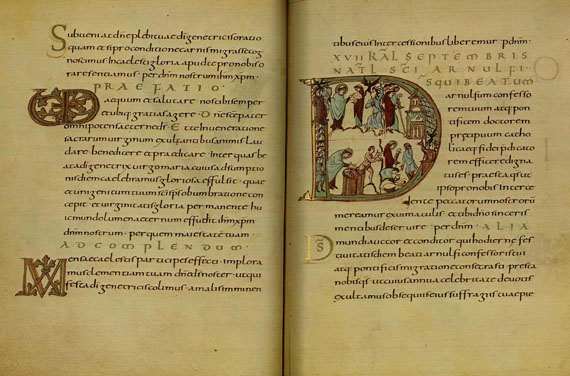 Subueniat dne plebi tuae di genetricis oratio
quam etsi pro conditione carnis migrasse cog
noscimus in caelesti gloria apud te pro nobis o
rare sentiamus per dnm nostrum ihm xpm
PRAEFATIO
aequum et salutare nos tibi semper
et ubique gratias agere Dne sce pater
omnipotens aeterne ds Et te in ueneratione
sacrarum uirginum exultantibus animis lau
dare benedicere et praedicare inter quas be
ata di genetrix uirgo maria cuius adsumptio
nis diem celebramus gloriosa effulsit quae
et unigenitum tuum sci sps obumbratione con
cepit et uirginitatis gloria permanente hu
ic mundo lumen aeternum effudit ihm xpm
dnm nostrum per quem maiestatem tuam
AD COMPLENDUM
Mensae caelestis participes effecti implora
mus clementiam tuam dne ds noster ut qui
festa di genetricis colimus a malis imminen
tibus eius intercessionibus liberemur p dnm
XVII KAL SEPTEMBRIS
NATL SCI ARNULFI
DS QUI BEATUM
arnulfum confesso
rem tuum atq pon
tificem doctorem
praecipuum catho
licaeq fidei pdicato
rem efficere digna
tus es praesta qs ut
ipso pro nobis interce
dente peccatorum nostrorum
mereamur ex maculis et tibi dno sinceris
mentibus deseruire per dnm ALIA
Ds mundi auctor et conditor qui hodiernae fes
tiuitatis diem beati arnulfi confessoris tui
atq pontificis migratione consecrasti presta
nobis qs ut cuius annua celebritate deuotis
exultamus obsequiis eius suffragiis tuae pie